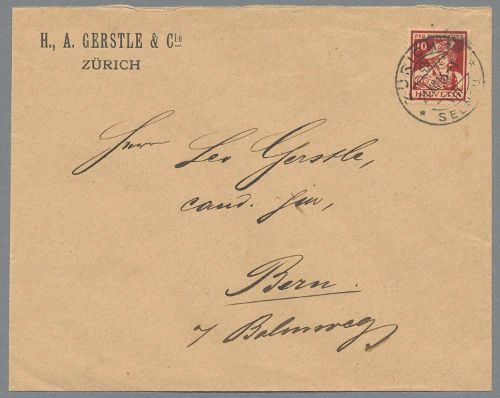 H., A. GERSTLE & Cie
ZÜRICH
PRO JUVENTUTE
10
HELVETIA
ZÜRICH
SELNAU
Herrn Leo Gerstle,
cand. jur,
Bern.
7 Balmweg